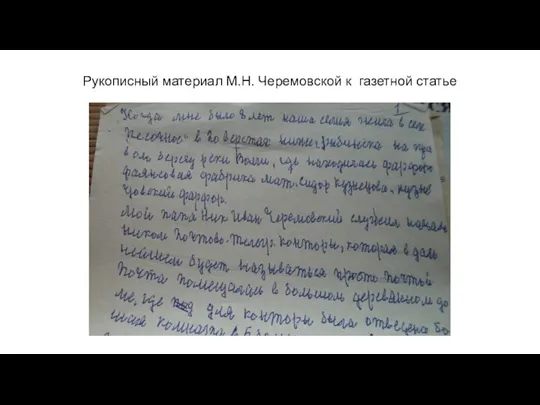 Рукописный материал М.Н. Черемовской к газетной статье
1
Когда мне было 8 лет наша семья жила в селе
Песочное в 20 верстах ниже Рыбинска на пра
вом берегу реки Волги, где находилась фарфоро
фаянсовая фабрика Мат. Сидор Кузнецова,
цовский фарфор.
Мой папа Ник Иван Черемовский служил началь
ником Почтово-телегр. конторы, которая в даль
нейшем будет называться просто почтой
Почта помещалась в большом деревянном до
ме, где для конторы была отведена бо
комната в